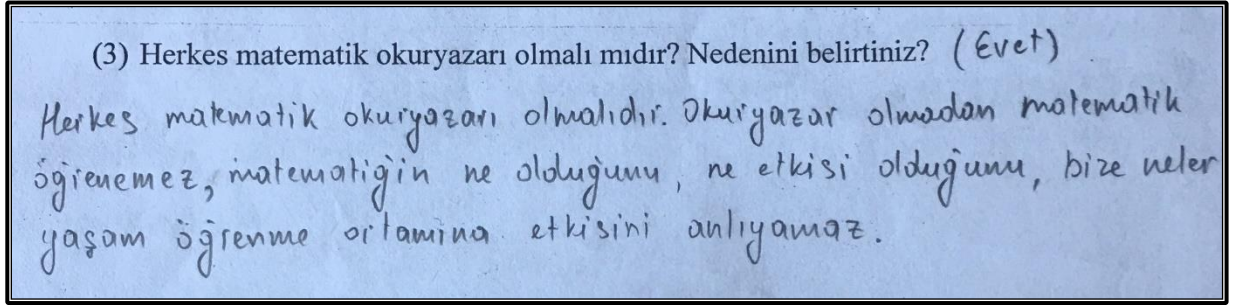 (3) Herkes matematik okuryazarı olmalı mıdır? Nedenini belirtiniz? (Evet)
Herkes matematik okuryazarı olmalıdır. Okuryazar olmadan matematik
öğrenemez, matematiğin ne olduğunu, ne etkisi olduğunu, bize neler
yaşam öğrenme ortamına etkisini anlıyamaz.